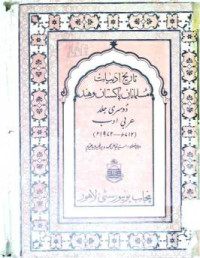 تاریخ ادبیات
مسلمانانِ پاکستان و ہند
دوسری جلد
عربی ادب
(۷۱۲ء — ۱۹۷۲ء)
پنجاب یونیورسٹی لاہور